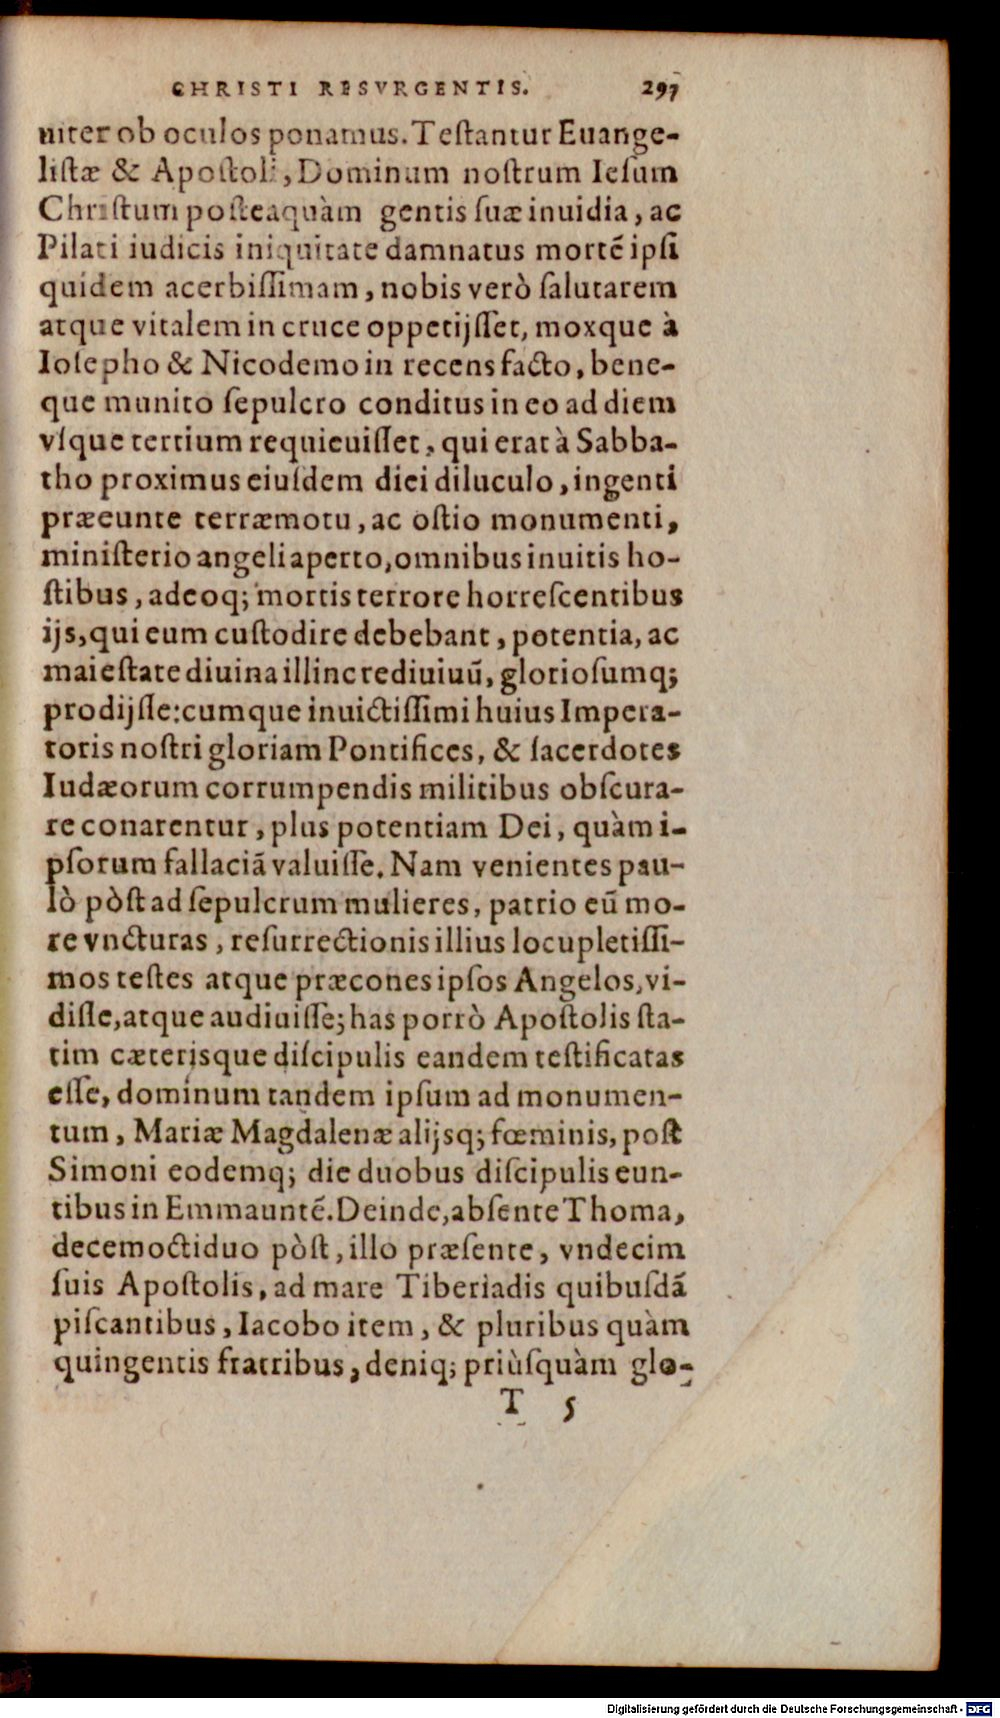 CHRISTI RESVRGENTIS. 297
niter ob oculos ponamus. Teſtantur Euange-
liſtæ & Apoſtoli, Dominum noſtrum Ieſum
Chriſtum poſteaquàm gentis ſuæ inuidia, ac
Pilati iudicis iniquitate damnatus mortē ipſi
quidem acerbiſſimam, nobis verò ſalutarem
atque vitalem in cruce oppetijſſet, moxque à
Ioſepho & Nicodemo in recens facto, bene-
que munito ſepulcro conditus in eo ad diem
vſque tertium requieuiſſet, qui erat à Sabba-
tho proximus eiuſdem diei diluculo, ingenti
præeunte terræmotu, ac oſtio monumenti,
miniſterio angeli aperto, omnibus inuitis ho-
ſtibus, adeoq; mortis terrore horreſcentibus
ijs, qui eum cuſtodire debebant, potentia, ac
maieſtate diuina illinc rediuiuū, glorioſumq;
prodijſſe: cumque inuictiſſimi huius Impera-
toris noſtri gloriam Pontifices, & ſacerdotes
Iudæorum corrumpendis militibus obſcura-
re conarentur, plus potentiam Dei, quàm i-
pſorum fallaciā valuiſſe. Nam venientes pau-
lò pòſt ad ſepulcrum mulieres, patrio eū mo-
re vncturas, reſurrectionis illius locupletiſſi-
mos teſtes atque præcones ipſos Angelos, vi-
diſſe, atque audiuiſſe; has porrò Apoſtolis ſta-
tim cæterisque diſcipulis eandem teſtificatas
eſſe, dominum tandem ipſum ad monumen-
tum, Mariæ Magdalenæ alijsq; fœminis, poſt
Simoni eodemq; die duobus diſcipulis eun-
tibus in Emmauntē. Deinde, abſente Thoma,
decemoctiduo pòſt, illo præſente, vndecim
ſuis Apoſtolis, ad mare Tiberiadis quibuſdā
piſcantibus, Iacobo item, & pluribus quàm
quingentis fratribus, deniq; priùſquàm glo-
T 5
Digitalisierung gefördert durch die Deutsche Forschungsgemeinschaft - DFG